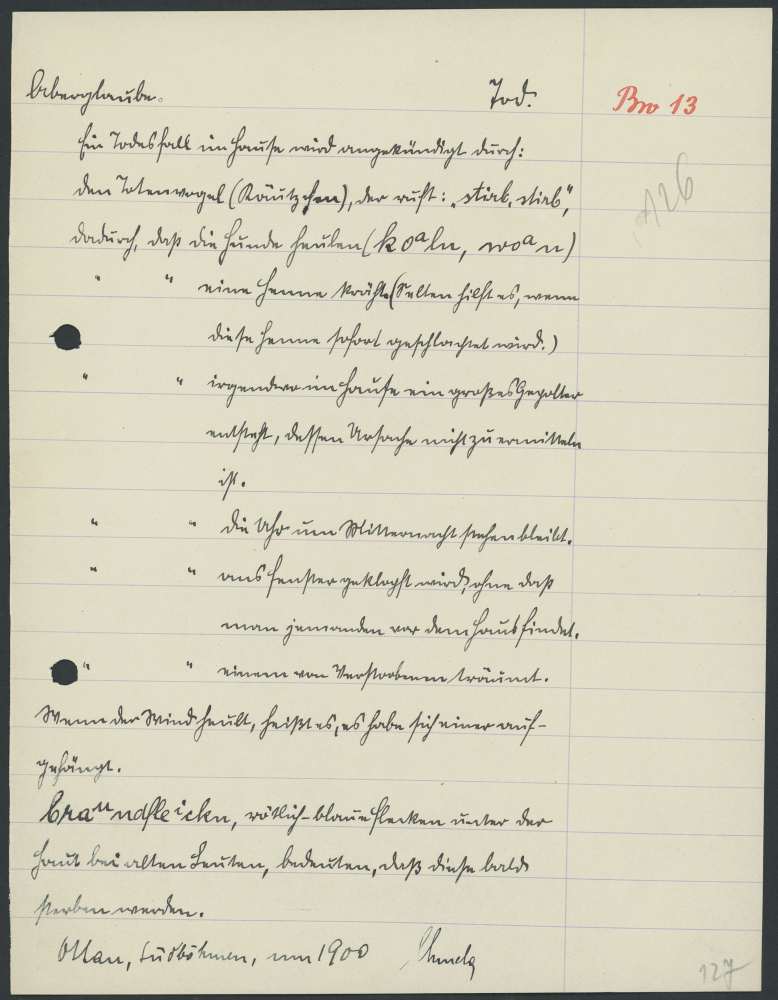 Aberglaube. Tod. Bro 13
Ein Todesfall im Hause wird angekündigt durch:
den Totenvogel (Käutzchen), der ruft: „stirb, stirb",
126
dadurch, daß die Hunde heulen (koᵃln, woᵃn)
" " eine Henne kräht. (Selten hilft es, wenn
diese Henne sofort geschlachtet wird.)
" " irgendwo im Hause ein großes Gepolter
entsteht, dessen Ursache nicht zu ermitteln
ist.
" " die Uhr um Mitternacht stehen bleibt.
" " ans Fenster geklopft wird, ohne daß
man jemanden vor dem Haus findet.
" " einem von Verstorbenen träumt.
Wenn der Wind heult, heißt es, es habe sich einer auf-
gehängt.
braᵘndfleⁱckn, rötlich-blaue Flecken unter der
Haut bei alten Leuten, bedeuten, daß diese bald
sterben werden.
Ottau, Südböhmen, um 1900
127